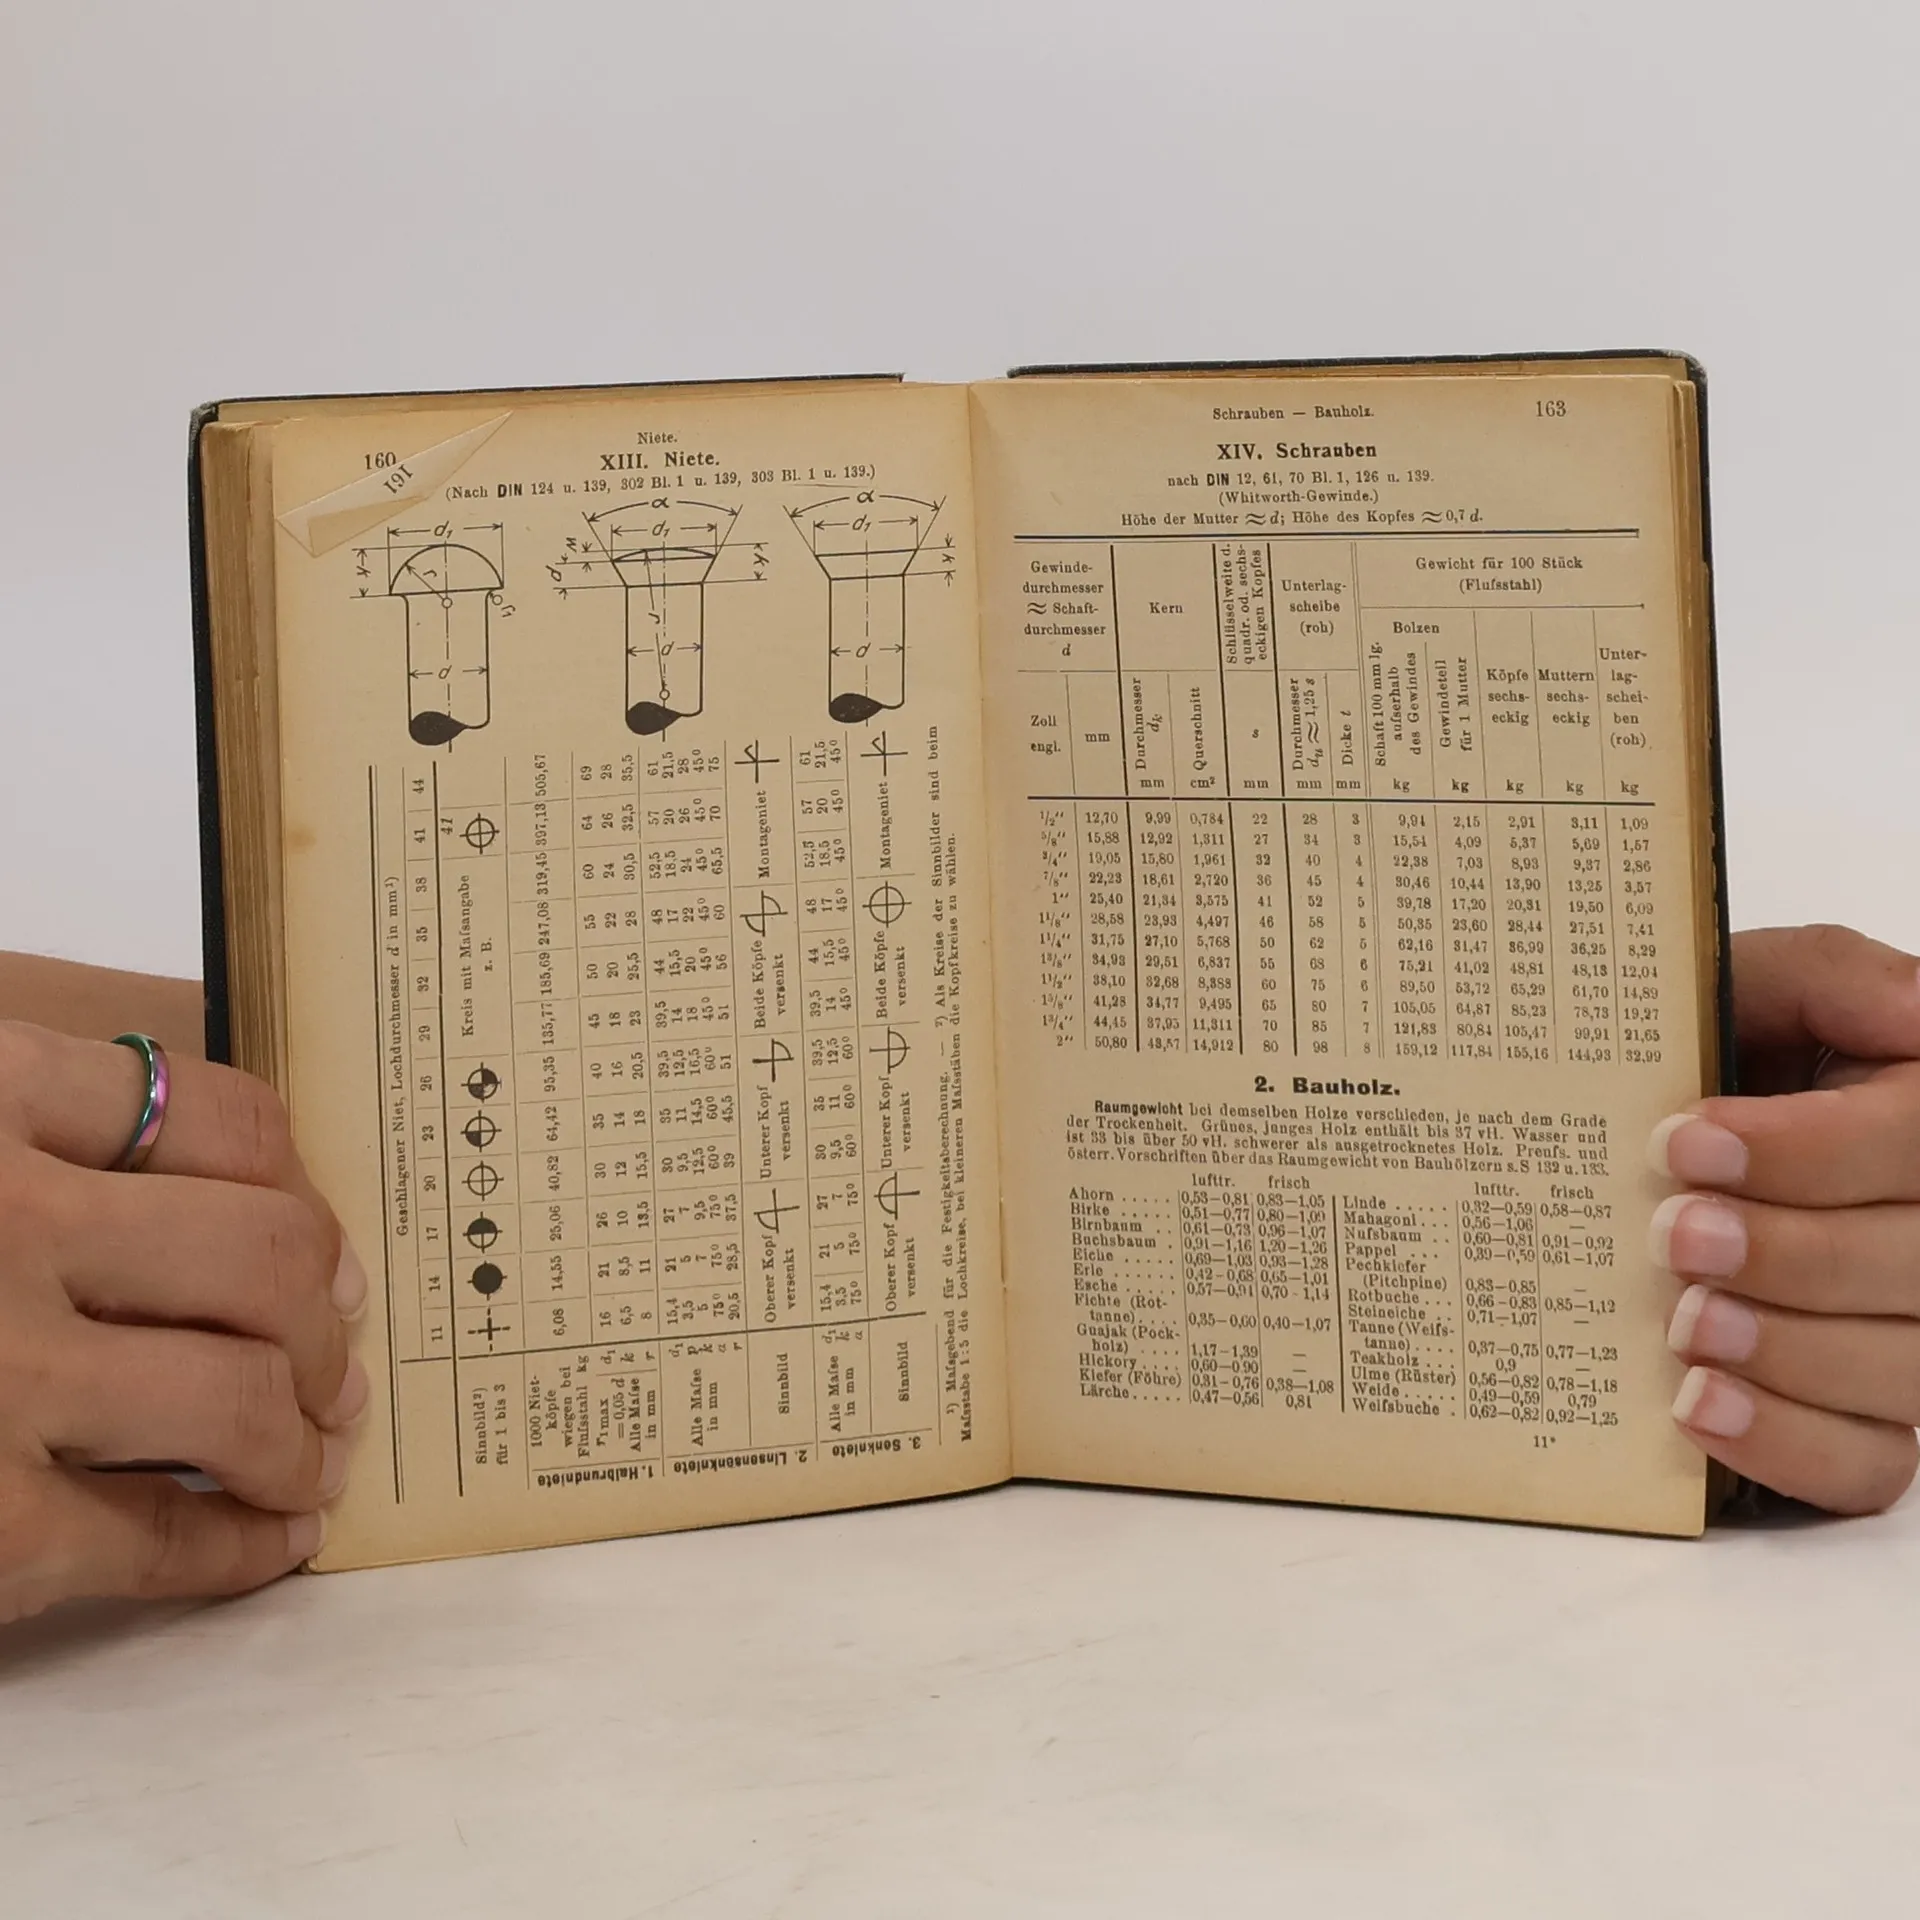 160
161
Niete.
XIII. Niete.
(Nach DIN 124 u. 139, 302 Bl. 1 u. 139, 303 Bl. 1 u. 139.)
d₁ k r r₁ d
α d₁ w d k r d
α d₁ k d
Geschlagener Niet, Lochdurchmesser d in mm¹)
11 14 17 20 23 26 29 32 35 38 41 44
Sinnbild²) für 1 bis 3
Kreis mit Maſsangabe z. B. 41
1. Halbrundniete
1000 Nietköpfe wiegen bei Fluſsstahl kg 6,08 14,55 25,06 40,82 64,42 95,35 135,77 185,69 247,08 319,45 397,13 505,67
r₁ max = 0,05 d Alle Maſse in mm
d₁ 16 21 26 30 35 40 45 50 55 60 64 69
k 6,5 8,5 10 12 14 16 18 20 22 24 26 28
r 8 11 13,5 15,5 18 20,5 23 25,5 28 30,5 32,5 35,5
2. Linsensenkniete
Alle Maſse in mm
d₁ 15,4 21 27 30 35 39,5 39,5 44 48 52,5 57 61
p 3,5 5 7 9,5 11 12,5 14 15,5 17 18,5 20 21,5
k 5 7 9,5 12,5 14,5 16,5 18 20 22 24 26 28
α 75⁰ 75⁰ 75⁰ 60⁰ 60⁰ 60⁰ 45⁰ 45⁰ 45⁰ 45⁰ 45⁰ 45⁰
r 20,5 28,5 37,5 39 45,5 51 51 56 60 65,5 70 75
Sinnbild Oberer Kopf versenkt Unterer Kopf versenkt Beide Köpfe versenkt Montageniet
3. Senkniete
Alle Maſse in mm
d₁ 15,4 21 27 30 35 39,5 39,5 44 48 52,5 57 61
k 3,5 5 7 9,5 11 12,5 14 15,5 17 18,5 20 21,5
α 75⁰ 75⁰ 75⁰ 60⁰ 60⁰ 60⁰ 45⁰ 45⁰ 45⁰ 45⁰ 45⁰ 45⁰
Sinnbild Oberer Kopf versenkt Unterer Kopf versenkt Beide Köpfe versenkt Montageniet
¹) Maſsgebend für die Festigkeitsberechnung. — ²) Als Kreise der Sinnbilder sind beim
Maſsstabe 1 : 5 die Lochkreise, bei kleineren Maſsstäben die Kopfkreise zu wählen.
Schrauben — Bauholz. 163
XIV. Schrauben
nach DIN 12, 61, 70 Bl. 1, 126 u. 139.
(Whitworth-Gewinde.)
Höhe der Mutter ≈ d; Höhe des Kopfes ≈ 0,7 d.
Gewindedurchmesser ≈ Schaftdurchmesser d
Kern
Schlüsselweite d. quadr. od. sechseckigen Kopfes
Unterlagscheibe (roh)
Gewicht für 100 Stück (Fluſsstahl)
Bolzen
Zoll engl. mm
Durchmesser dk mm
Querschnitt cm²
s mm
Durchmesser du ≈ 1,25 s mm
Dicke t mm
Schaft 100 mm lg. auſserhalb des Gewindes kg
Gewindeteil für 1 Mutter kg
Köpfe sechseckig kg
Muttern sechseckig kg
Unterlagscheiben (roh) kg
1/2″ 12,70 9,99 0,784 22 28 3 9,94 2,15 2,91 3,11 1,09
5/8″ 15,88 12,92 1,311 27 34 3 15,54 4,09 5,37 5,69 1,57
3/4″ 19,05 15,80 1,961 32 40 4 22,38 7,03 8,93 9,37 2,86
7/8″ 22,23 18,61 2,720 36 45 4 30,46 10,44 13,90 13,25 3,57
1″ 25,40 21,34 3,575 41 52 5 39,78 17,20 20,31 19,50 6,09
1 1/8″ 28,58 23,93 4,497 46 58 5 50,35 23,60 28,44 27,51 7,41
1 1/4″ 31,75 27,10 5,768 50 62 5 62,16 31,47 36,99 36,25 8,29
1 3/8″ 34,93 29,51 6,837 55 68 6 75,21 41,02 48,81 48,13 12,04
1 1/2″ 38,10 32,68 8,388 60 75 6 89,50 53,72 65,29 61,70 14,89
1 5/8″ 41,28 34,77 9,495 65 80 7 105,05 64,87 85,23 78,73 19,27
1 3/4″ 44,45 37,95 11,311 70 85 7 121,83 80,84 105,47 99,91 21,65
2″ 50,80 43,57 14,912 80 98 8 159,12 117,84 155,16 144,93 32,99
2. Bauholz.
Raumgewicht bei demselben Holze verschieden, je nach dem Grade
der Trockenheit. Grünes, junges Holz enthält bis 37 vH. Wasser und
ist 33 bis über 50 vH. schwerer als ausgetrocknetes Holz. Preuſs. und
österr. Vorschriften über das Raumgewicht von Bauhölzern s. S 132 u. 133.
lufttr. frisch
Ahorn . . . . . 0,53—0,81 0,83—1,05
Birke . . . . . 0,51—0,77 0,80—1,09
Birnbaum . . 0,61—0,73 0,96—1,07
Buchsbaum . 0,91—1,16 1,20—1,26
Eiche . . . . . 0,69—1,03 0,93—1,28
Erle . . . . . . 0,42—0,68 0,65—1,01
Esche . . . . . 0,57—0,94 0,70—1,14
Fichte (Rot-
tanne) . . . . 0,35—0,60 0,40—1,07
Guajak (Pock-
holz) . . . . 1,17—1,39 —
Hickory . . . . 0,60—0,90 —
Kiefer (Föhre) 0,31—0,76 0,38—1,08
Lärche . . . . . 0,47—0,56 0,81
lufttr. frisch
Linde . . . . . 0,32—0,59 0,58—0,87
Mahagoni . . . 0,56—1,06 —
Nuſsbaum . . 0,60—0,81 0,91—0,92
Pappel . . . 0,39—0,59 0,61—1,07
Pechkiefer
(Pitchpine) 0,83—0,85 —
Rotbuche . . . 0,66—0,83 0,85—1,12
Steineiche . . 0,71—1,07 —
Tanne (Weiſs-
tanne) . . . . 0,37—0,75 0,77—1,23
Teakholz . . . 0,9 —
Ulme (Rüster) 0,56—0,82 0,78—1,18
Weide . . . . . 0,49—0,59 0,79
Weiſsbuche . 0,62—0,82 0,92—1,25
11*